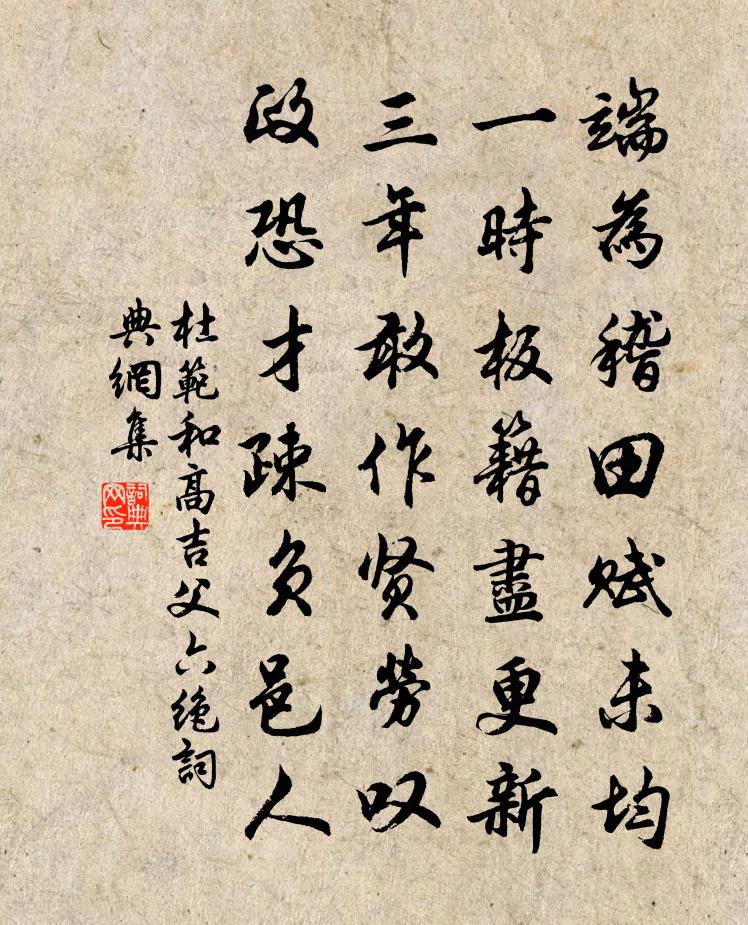 端為稽田賦未均
一時板籍盡更新
三年敢作贤勞叹
政恐才疎负邑人
杜範和高吉父六绝詞
典網集
詞典网印